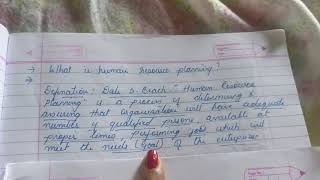 → What is human resource planning?
→ Definition: Dale S. Beach "Human Resource
Planning" is a process of determining &
assuring that organisation will have adequate
number of qualified persons, available at
proper times, performing jobs which will
meet the needs (Goal) of the enterprises